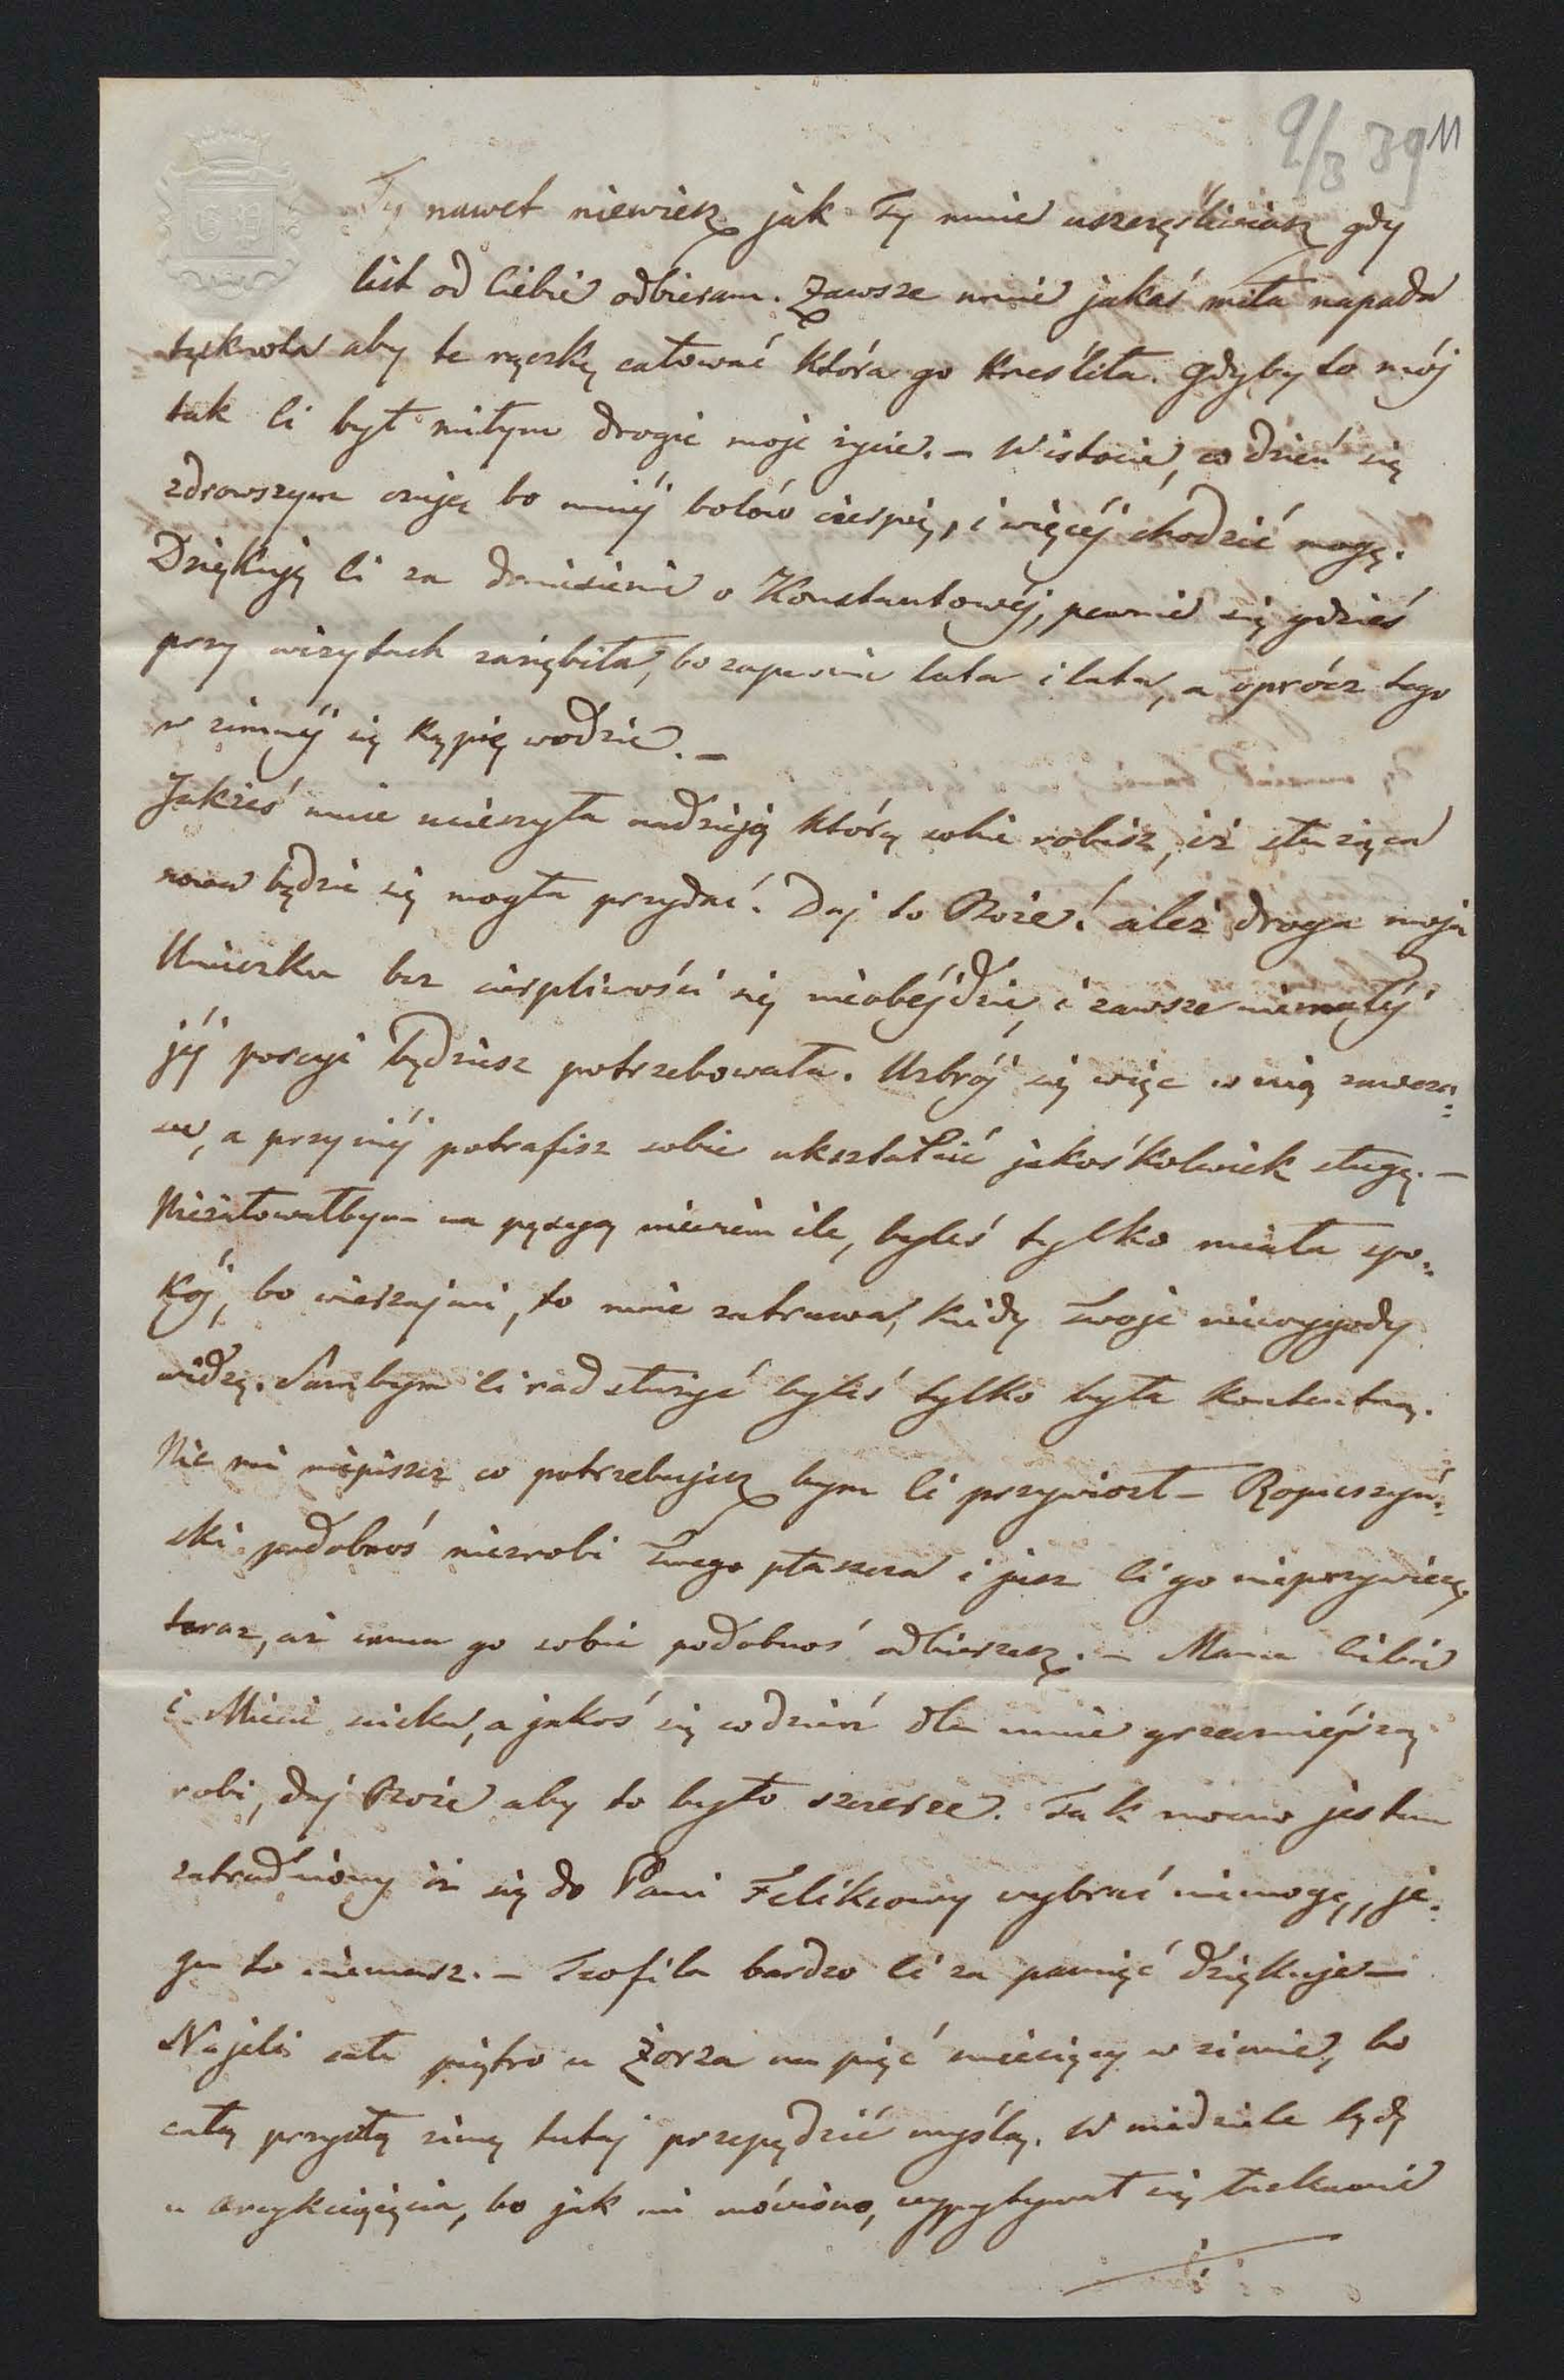 9/3 39 11
Ty nawet niewiesz jak Ty mnie uszczęśliwiasz gdy
list od Ciebie odbieram. Zawsze mnie jakaś miła napada
tęsknota aby te rączkę całować która go kreśliła. gdyby to mój
tak Ci był miłym drogie moje życie. – W istocie, co dzień się
zdrowszym czuję bo mniéj bolów cierpię, i więcéj chodzić mogę.
Dziękuję Ci za doniesienie o Konstantowéj, pewnie się gdzieś
przy wizytach zaziębiła, bo zapewne lata i lata, a oprócz tego
w zimnéj się kąpie wodzie. –
Jakżeś mnie ucieszyła nadzieją którą sobie robisz, iż służąca
nowa będzie się mogła przydać. Daj to Boże! ależ droga moja
bez cierpliwości się nieobéjdzie, i zawsze niemałéj
jéj porcyi będziesz potrzebowała. Uzbrój się więc w nią zawcza:
su, a przy niéj potrafisz sobie ukształcić jakośkolwiek sługę. –
Nieżałowałbym na pęsyą niewiem ile, byleś tylko miała spo:
kój, bo wierzaj mi, to mnie zatruwa, kiedy Twoje niewygody
widzę. Sam bym Ci rad służyć byleś tylko była kontentną.
Nic mi niepiszesz co potrzebujesz bym Ci przywiozł – Ropuszyń:
ski podobnoś niezrobi Twego płaszcza i jusz Ci go nieprzywiozę
teraz, aż sama go sobie podobnoś odbierzesz. – Mama Ciebie
i Micie ściska, a jakoś się codzień dla mnie grzeczniéjszą
robi, daj Boże aby to było szczerze. Tak mocno jestem
zatrudniony iż się do Pani Felixowy wybrać niemogę, je:
go to niemasz. – Teofila bardzo Ci za pamięć dziękuje –
Najeli całe piętro u Żorża na pięć miesięcy w zimie, bo
całą przyszłą zimę tutaj przepędzić myślą. W niedziele będę
u arcyksięcia, bo jak mi mówiono, wypytywał się łaskawie